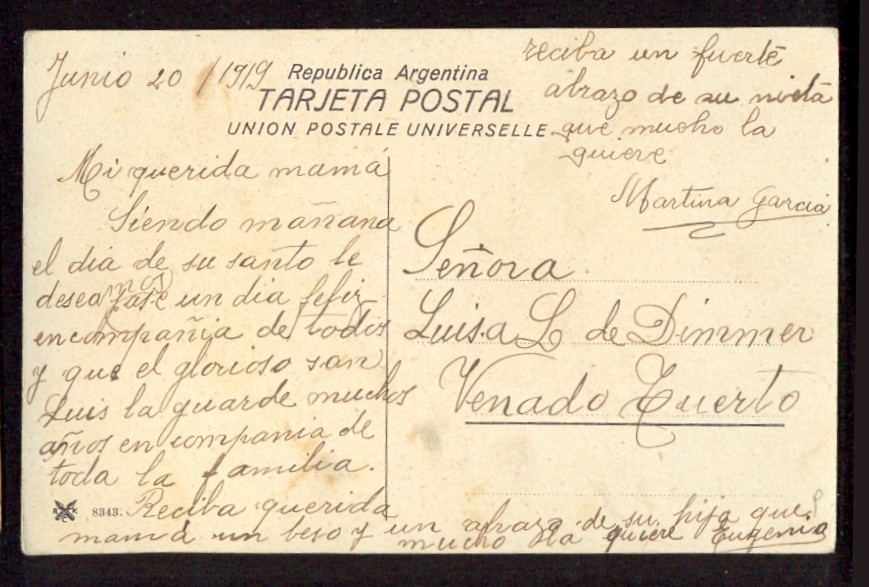 Junio 20/1919
Republica Argentina
TARJETA POSTAL
UNION POSTALE UNIVERSELLE
Mi querida mamá
Siendo mañana
el dia de su santo le
deseamos pase un dia feliz
en compañia de todos
y que el glorioso san
Luis la guarde muchos
años en compania de
toda la familia.
Reciba querida
mamá un beso y un abrazo de su hija que
mucho la quiere Eugenia
8343.
reciba un fuerte
abrazo de su nieta
que mucho la
quiere
Martina Garcia
Señora
Luisa L de Dimmer
Venado Tuerto